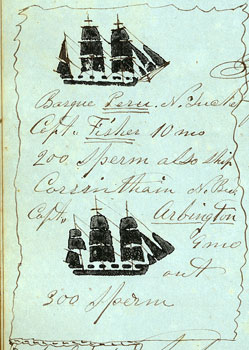 Barque Peru. N. Tucke
Capt. Fisher 10 mo
200 Sperm also ship
Corrinthain N. Bed
Capt. Arbington
9 mo
out
300 Sperm